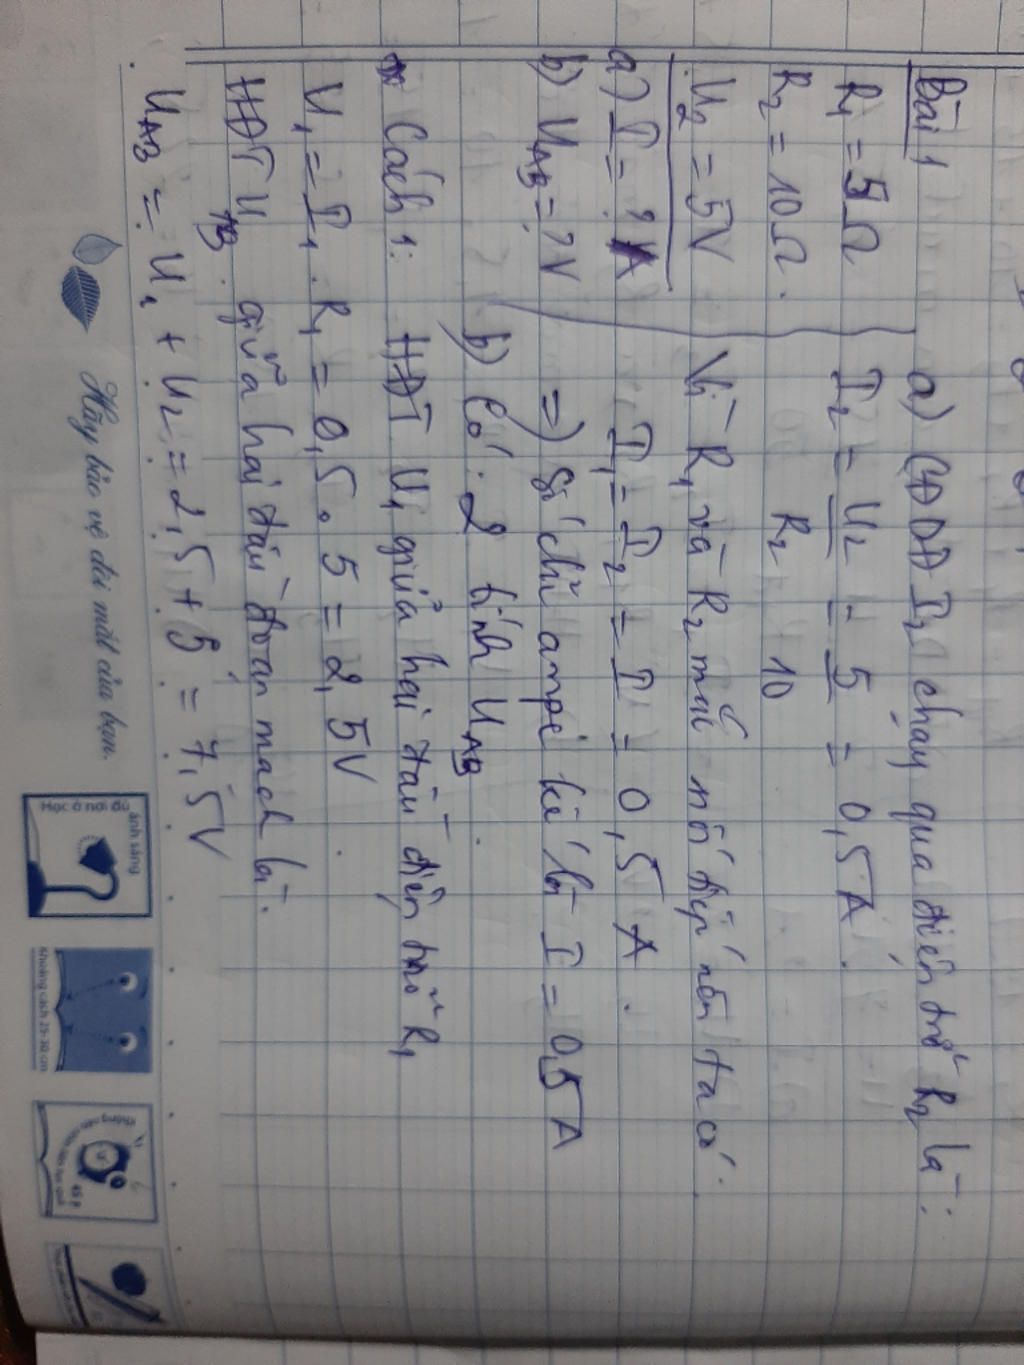 Bài 1
R₁ = 5Ω
R₂ = 10Ω.
U₂ = 5V
a) I = ? A
b) U_AB = ? V
a) CĐDĐ I₂ chạy qua điện trở R₂ là:
I₂ = U₂/R₂ = 5/10 = 0,5A.
Vì R₁ và R₂ mắc nối tiếp nên ta có.
I₁ = I₂ = I = 0,5 A.
=> Số chỉ ampe kế là I = 0,5A
b) Có: 2 tính U_AB.
* Cách 1: HĐT U₁ giữa hai đầu điện trở R₁
U₁ = I₁ . R₁ = 0,5 . 5 = 2,5V.
HĐT U_AB giữa hai đầu đoạn mạch là.
U_AB = U₁ + U₂ = 2,5 + 5 = 7,5V
Hãy bảo vệ đôi mắt của bạn.
Học ở nơi đủ ánh sáng
Khoảng cách 25-30 cm